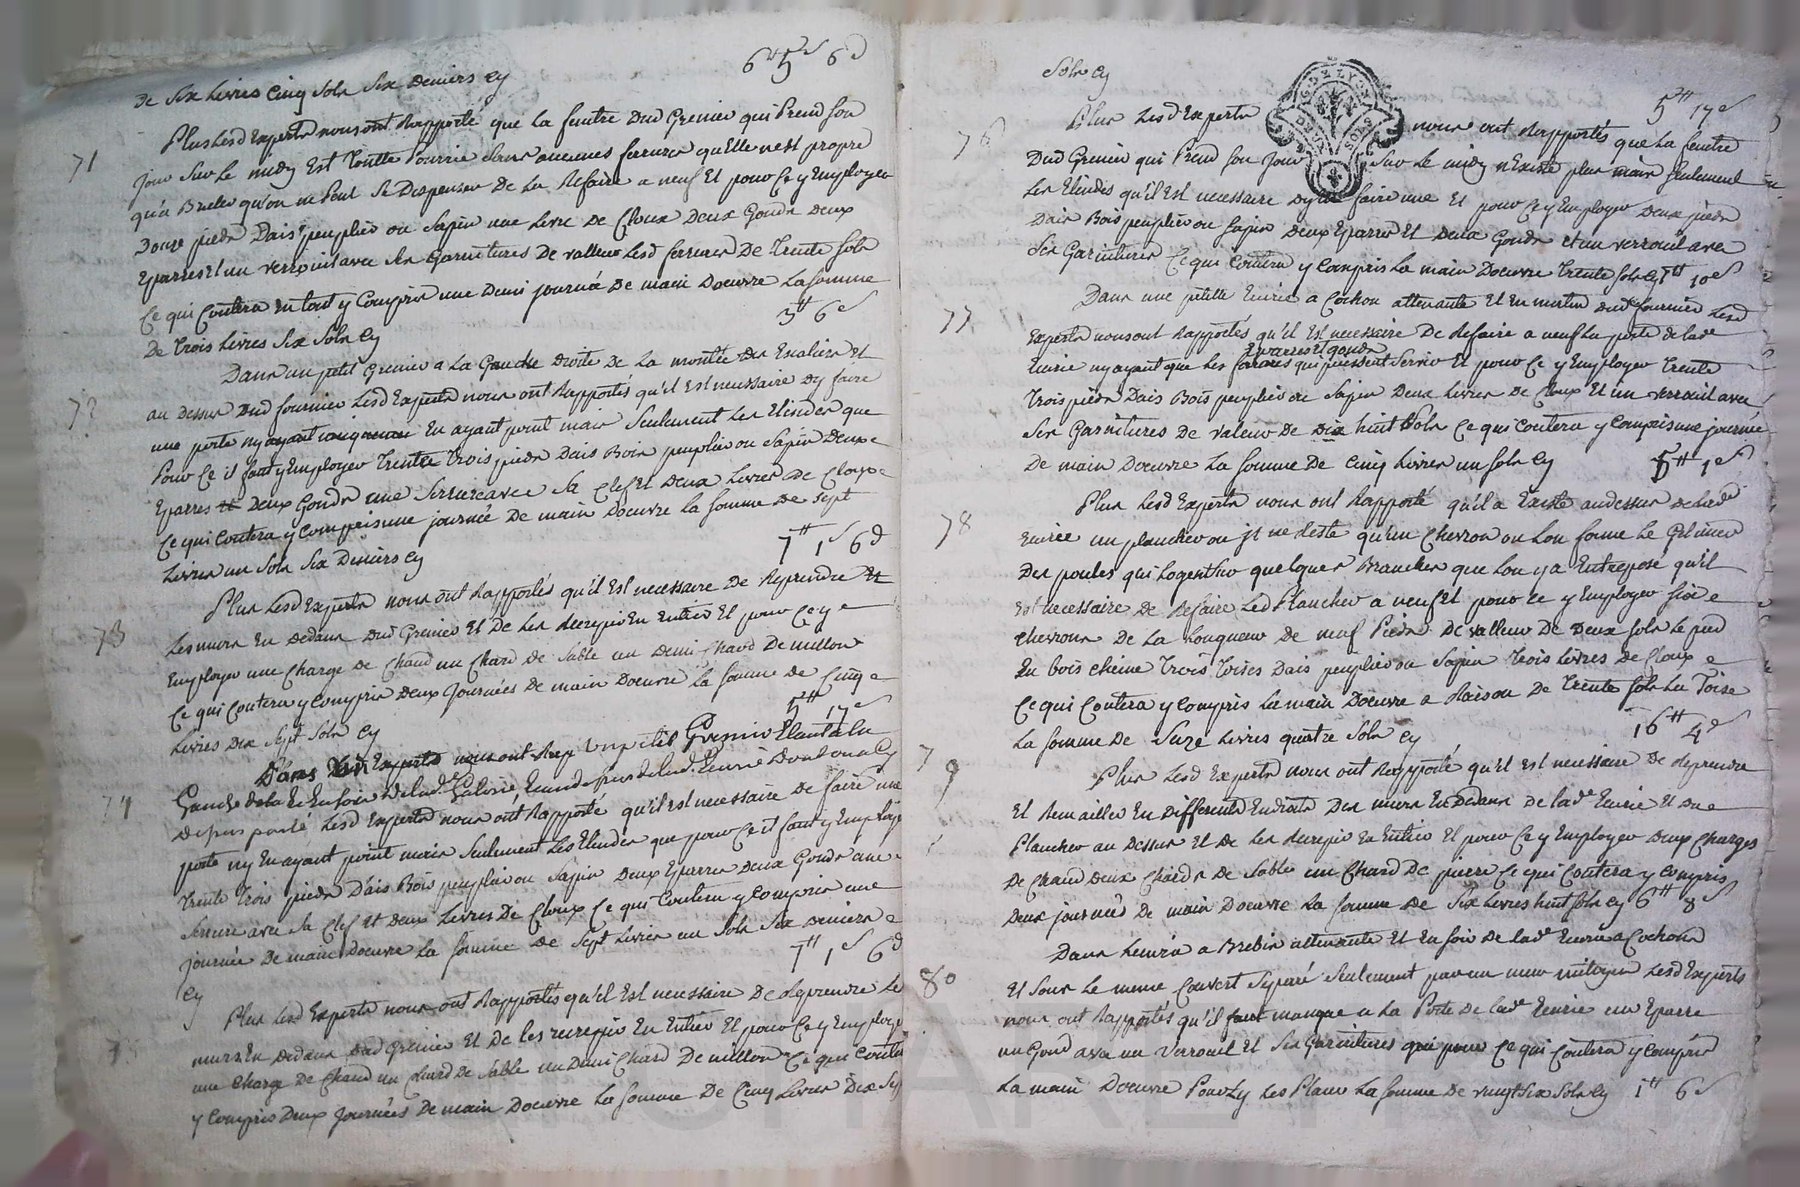 De Six Livres Cinq Sols Six Deniers Cy 6tt 5s 6d
71 Plus Lesd Experts nous ont Rapporté que La fenêtre Dud Grenier qui Prend Son
Jour Sur Le midy Est Toutte Pourrie Sans aucunes ferrures qu'Elle n'est propre
qu'a Bruler qu'on ne Peut Se Dispenser De La Refaire a neuf Et pour Ce y Employer
Douze pieds D'ais peuplier ou Sapin une Livre De Cloux Deux Gonds Deux
Eparres Et un verrouil avec Ses Garnitures De valleur Lesd ferrures De Trente Sols
Ce qui Coutera En tout y Compris une Demi journée De main Doeuvre La Somme
De Trois Livres Six Sols Cy 3tt 6s
72 Dans un petit Grenier a La Gauche Droite De La montée Des Escaliers Et
au Dessus Dud fournier Lesd Experts nous ont Rapportés qu'il Est necessaire Dy faire
une porte ny ayant En ayant point mais Seulement Les Elindes que
Pour Ce il faut y Employer Trente Trois pieds Dais Bois peuplier ou Sapin Deux
Eparres Et Deux Gonds une Serrure avec Sa Clef Et Deux Livres De Cloux
Ce qui Coutera y Compris une journée De main Doeuvre La Somme De Sept
Livres un Sols Six Deniers Cy 7tt 1s 6d
73 Plus Lesd Experts nous ont Rapportés qu'il Est necessaire De Reprendre Et
Les murs En Dedans Dud Grenier Et De Les Recrepir En Entier Et pour Ce y
Employer une Charge De Chaud un Chard De Sable un Demi Chard De millon
Ce qui Coutera y Compris Deux Journées De main Doeuvre La Somme De Cinq
Livres Dix Sept Sols Cy 5tt 17s
74 Dans Un Experts nous ont Rap Un petit Grenier Etant a La
Gauche de la De Lad. Galerie Et au dessus de Lad. Ecurie Dont on a Cy
Depus parlé Lesd Experts nous ont Rapporté qu'il Est necessaire De faire une
porte ny En ayant point mais Seulement Les Elindes que pour Ce il faut y Employer
Trente Trois pieds D'ais Bois peuplier ou Sapin Deux Eparres Deux Gonds une
Serrure avec Sa Clef Et Deux Livres De Cloux Ce qui Coutera y Compris une
journée De main Doeuvre La Somme De Sept Livres un Sols Six Deniers
Cy 7tt 1s 6d
75 Plus Lesd Experts nous ont Rapportés qu'il Est necessaire De Reprendre Les
murs En Dedans Dud Grenier Et De Les recrepir En Entier Et pour Ce y Employer
une Charge De Chaud un Chard De Sable un Demi Chard De millon Ce qui Coutera
y Compris Deux Journées De main Doeuvre La Somme De Cinq Livres Dix Sept
Sols Cy 5tt 17s
76 Plus Lesd Experts nous ont Rapportés que La fenêtre
G. DE LYON DEUX SOLS
Dud Grenier qui Prend Son Jour Sur Le midy n'Existe plus mais Seulement
Les Elindes qu'il Est necessaire Dy En faire une Et pour Ce y Employer Deux pieds
Dais Bois peuplier ou Sapin Deux Eparres Et Deux Gonds et un verrouil avec
Ses Garnitures Ce qui Coutera y Compris La main Doeuvre Trente Sols Cy 1tt 10s
77 Dans une petitte Ecurie a Cochon attenante Et En matin Dud fournier Lesd
Experts nous ont Rapportés qu'il Est necessaire De Refaire a neuf La porte de Lade
Eparres Et gonds
Ecurie ny ayant que Les ferrures qui puissent Servir Et pour Ce y Employer Trente
Trois pieds Dais Bois peuplier ou Sapin Deux Livres De Cloux Et un verrouil avec
Ses Garnitures De valeur De Dix huit Sols Ce qui Coutera y Compris une journée
De main Doeuvre La Somme De Cinq Livres un Sols Cy 5tt 1s
78 Plus Lesd Experts nous ont Rapporté qu'il a Existé au dessus de Lade
Ecurie un plancher ou il ne Reste qu'un Chevron ou Lon forme Le Gelinier
Des poules qui Logent Sur quelques Branches que Lon y a Entreposé qu'il
Est necessaire De Refaire Led Plancher a neuf Et pour Ce y Employer Six
Chevrons De La Longueur De neuf Pieds De valleur De Deux Sols Le pied
En bois chesne Trois Toises Dais peuplier ou Sapin Trois Livres De Cloux
Ce qui Coutera y Compris La main Doeuvre a Raison De Trente Sols La Toise
La Somme De Seize Livres quatre Sols Cy 16tt 4s
79 Plus Lesd Experts nous ont Rapporté qu'il Est necessaire De Reprendre
Et Remailler En Differents Endroits Des murs En Dedans De Lade Ecurie Et Du
Plancher au Dessus Et De Les Recrepir En Entier Et pour Ce y Employer Deux Charges
De Chaud Deux Chards De Sable un Chard De pierre Ce qui Coutera y Compris
Deux journées De main Doeuvre La Somme De Six Livres huit Sols Cy 6tt 8s
80 Dans Lecurie a Brebis attenante Et En Soir De Lade Ecurie a Cochons
Et Sous Le meme Couvert Separé Seulement par un mur mitoyen Lesd Experts
nous ont Rapportés qu'il faut manque a La Porte De Lade Ecurie un Eparre
un Gond avec un Verrouil Et Ses Garnitures que pour Ce qui Coutera y Compris
La main Doeuvre Pour Ly Les Placer La Somme De vingt Six Sols Cy 1tt 6s